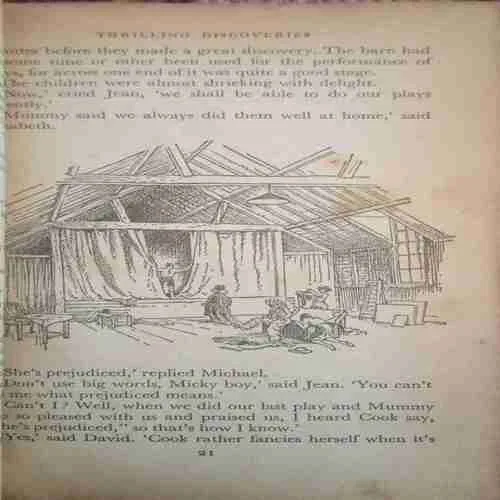 THRILLING DISCOVERIES
before they made a great discovery. The barn had
some time or other been used for the performance of
for across one end of it was quite a good stage.
The children were almost shrieking with delight.
Now,' cried Jean, 'we shall be able to do our plays
Mummy said we always did them well at home,' said
abeth.
She's prejudiced,' replied Michael.
Don't use big words, Micky boy,' said Jean. 'You can't
me what prejudiced means.'
Can't I? Well, when we did our last play and Mummy
so pleased with us and praised us, I heard Cook say,
he's prejudiced," so that's how I know.'
Yes,' said David. 'Cook rather fancies herself when it's
21